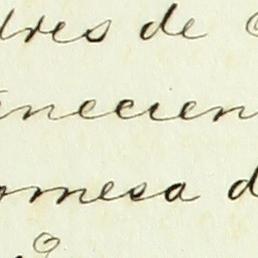 dres de
enecien
omesa d